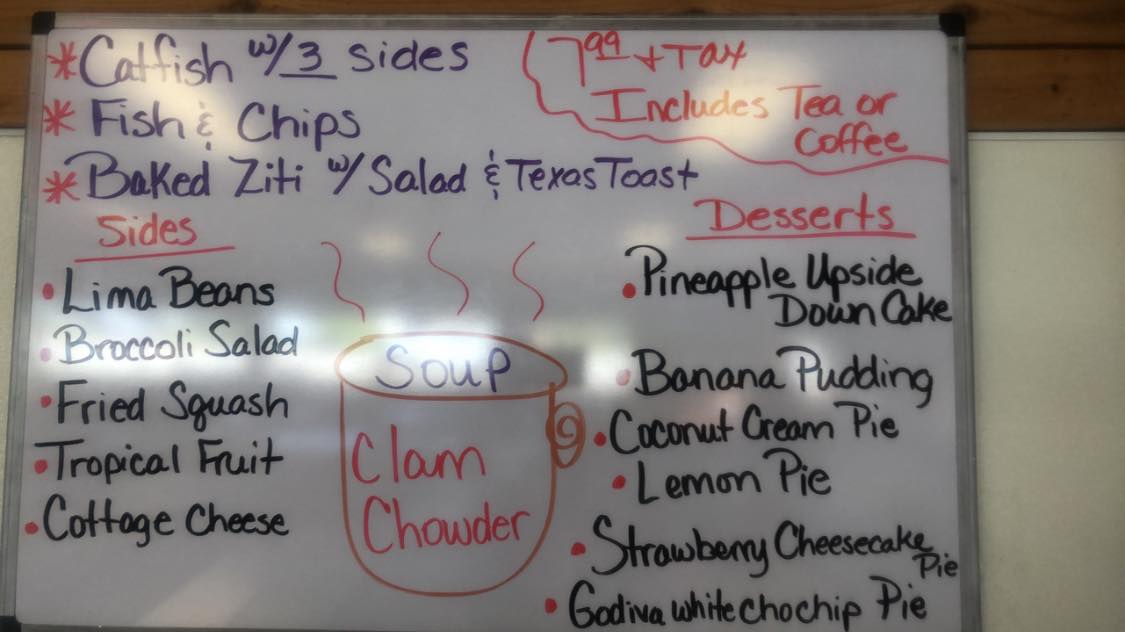 * Catfish w/ 3 sides
* Fish & Chips
* Baked Ziti w/ Salad & Texas Toast
7.99 + Tax
Includes Tea or
Coffee
Sides
• Lima Beans
• Broccoli Salad
• Fried Squash
• Tropical Fruit
• Cottage Cheese
Soup
Clam
Chowder
Desserts
• Pineapple Upside
Down Cake
• Banana Pudding
• Coconut Cream Pie
• Lemon Pie
• Strawberry Cheesecake
Pie
• Godiva white chochip Pie